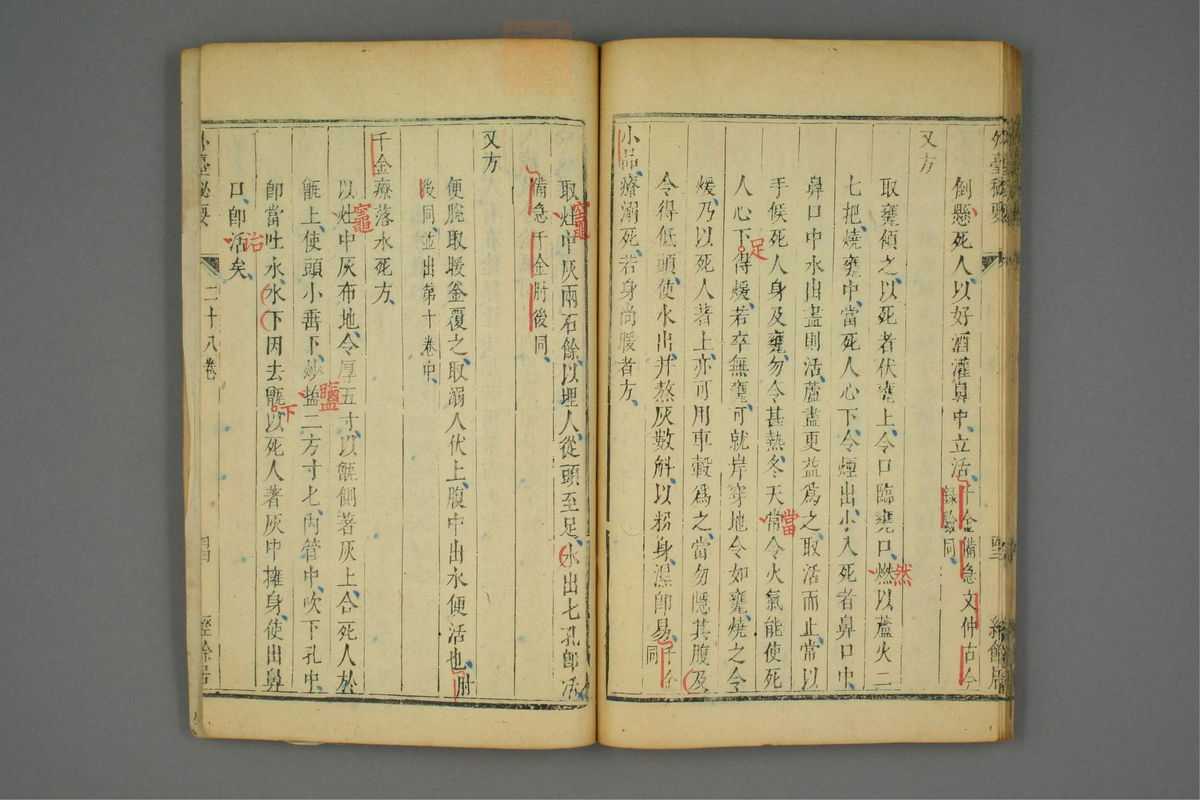 外臺祕要
四三
經餘居
倒懸死人以好酒灌鼻中立活千金備急文仲古今
錄驗同
又方
取甕傾之以死者伏甕上令口臨甕口燃以蘆火二
然
七把燒甕中當死人心下令煙出小入死者鼻口中
鼻口中水出盡則活蘆盡更益爲之取活而止常以
當
手候死人身及甕勿令甚熱冬天常令火氣能使死
人心下得煖若卒無甕可就岸穿地令如甕燒之令
足
煖乃以死人著上亦可用車轂爲之當勿隱其腹及
令得低頭使水出并熬灰數斛以粉身濕卽易千金
同
小品療溺死若身尚暖者方
取灶中灰兩石餘以埋人從頭至足水出七孔卽活
竈
備急千金肘後同
又方
便脫取暖釜覆之取溺人伏上腹中出水便活也肘
後同並出第十卷中
千金療落水死方
以灶中灰布地令厚五寸以甑側著灰上合死人於
竈
甑上使頭小垂下炒盐二方寸匕內管中吹下孔中
鹽
卽當吐水水下因去甑以死人著灰中擁身使出鼻
下
口卽活矣
治
外臺祕要
二十八卷
四四
經餘居